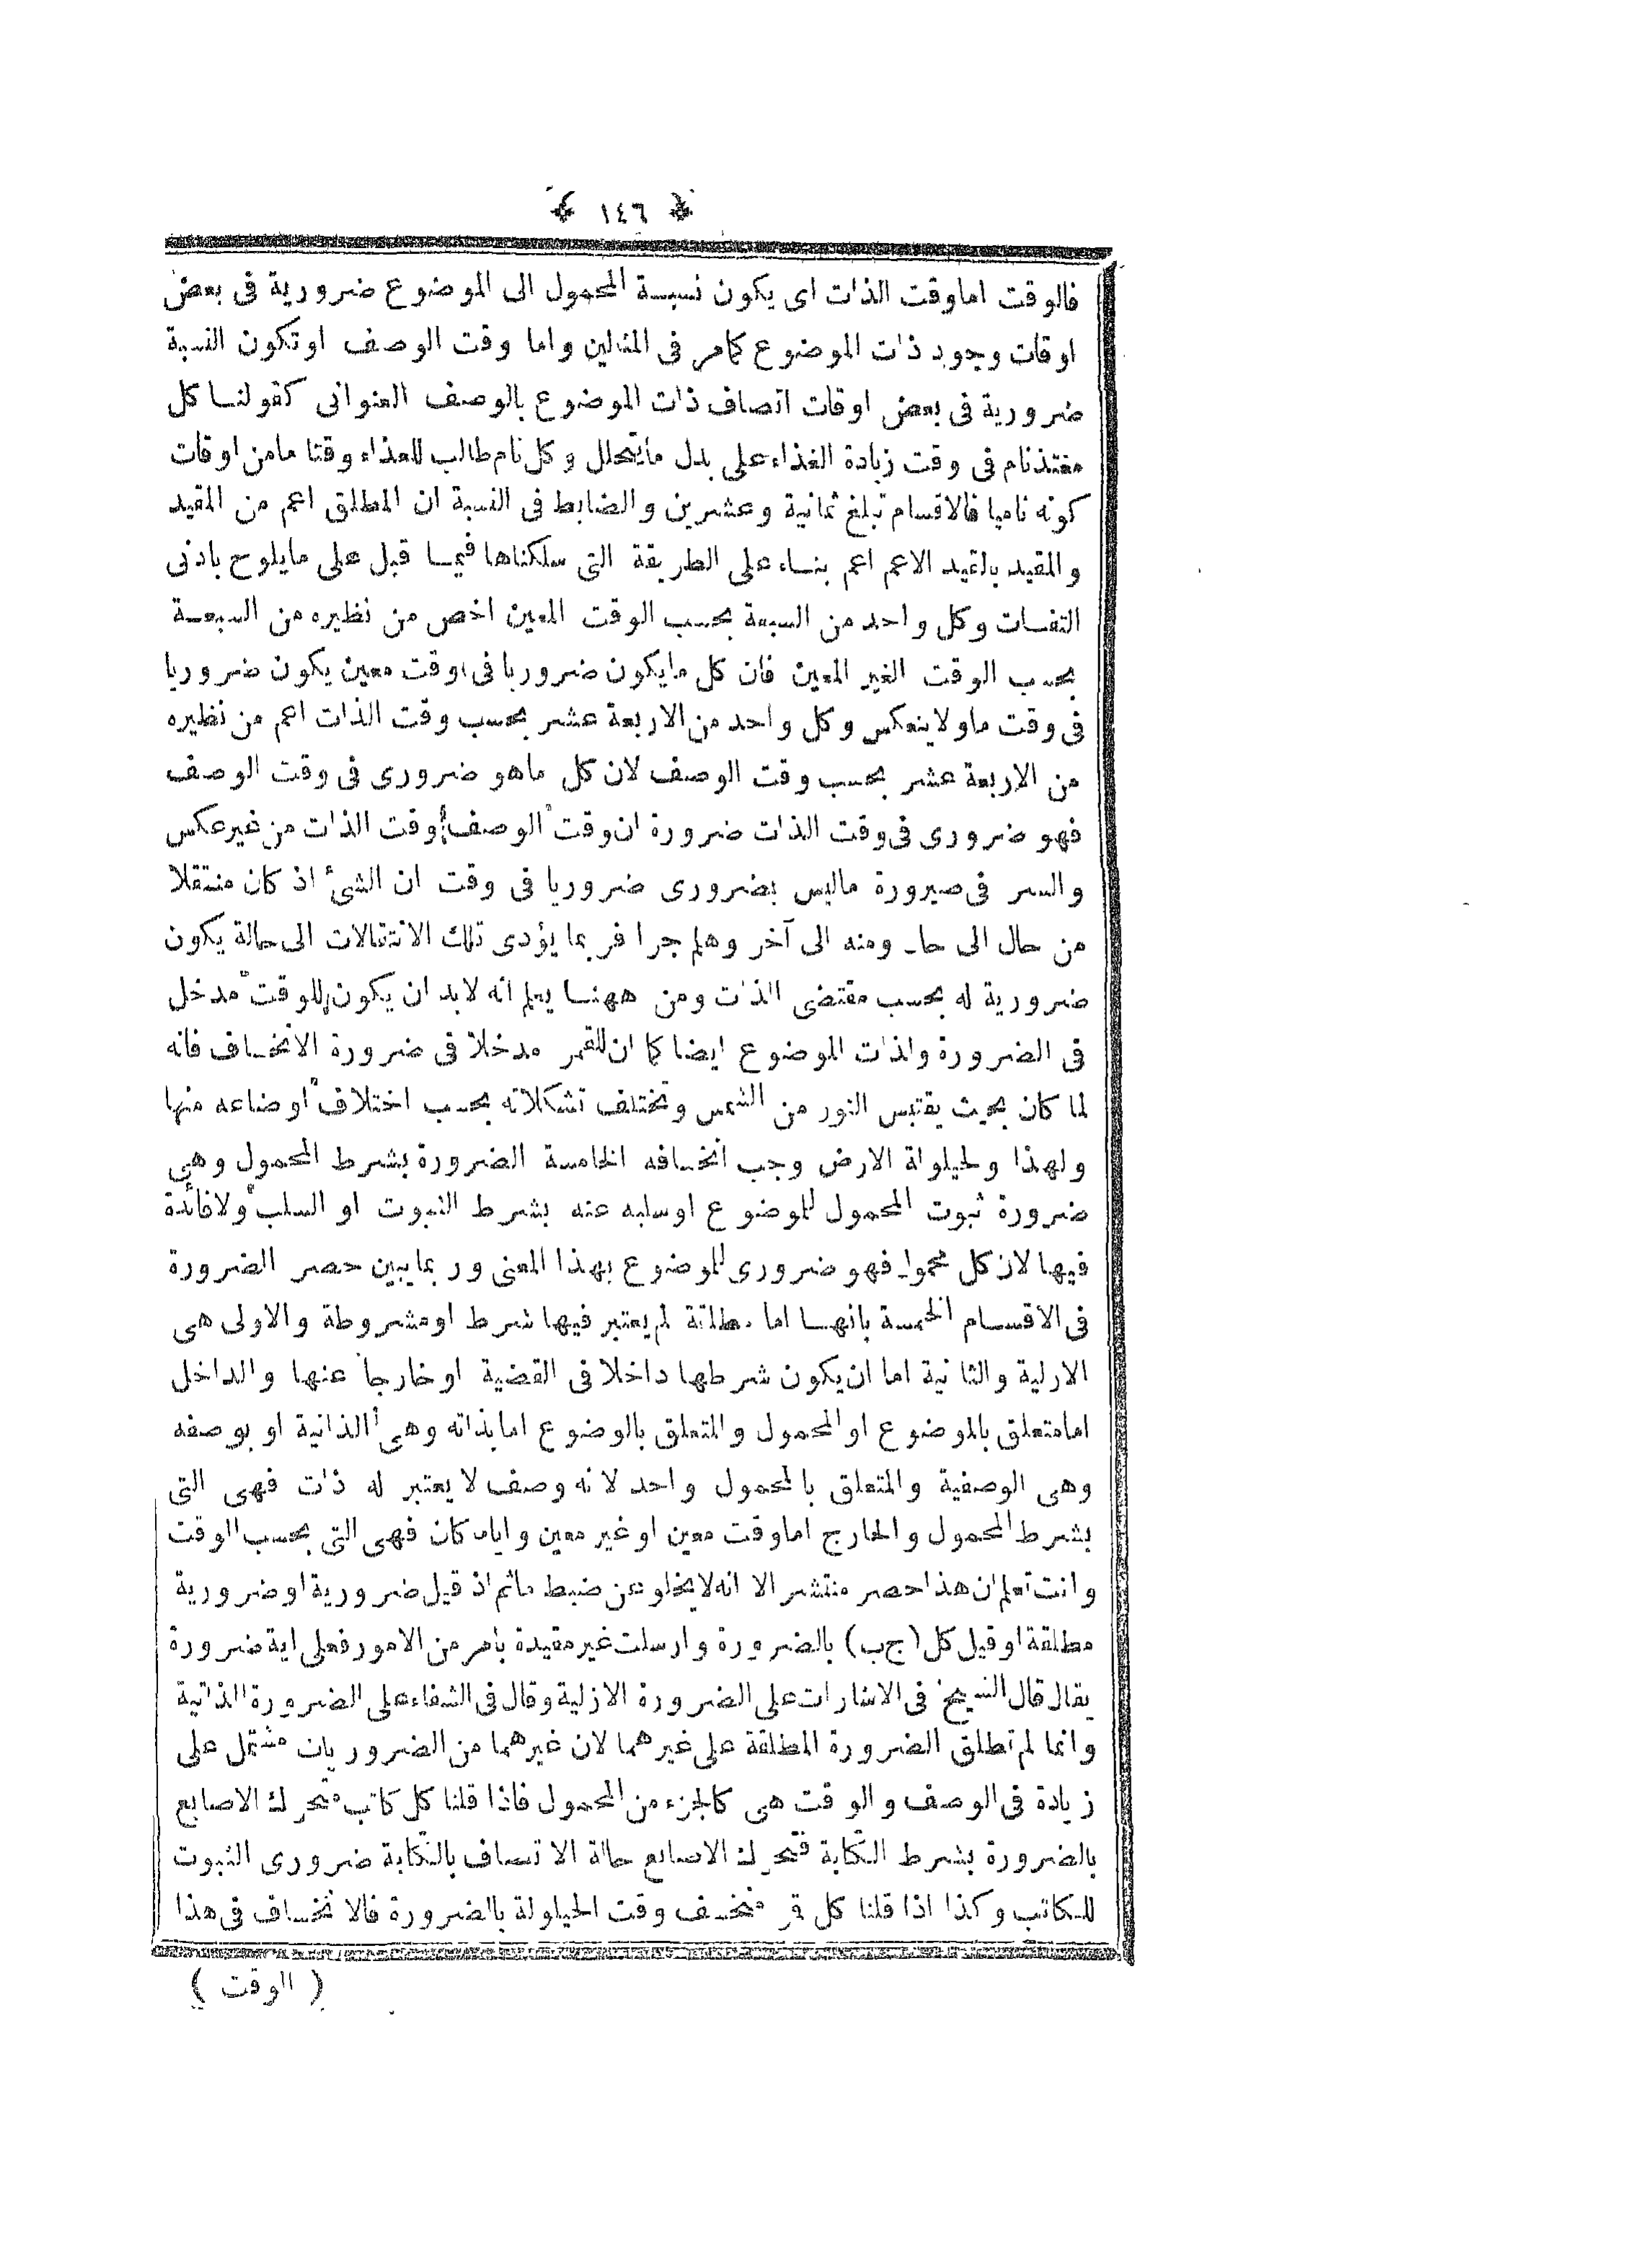 ﴿ ١٤٦ ﴾
فالوقت اما وقت الذات اى يكون نسبة المحمول الى الموضوع ضرورية فى بعض
اوقات وجود ذات الموضوع كمامر فى المثالين واما وقت الوصف او تكون النسبة
ضرورية فى بعض اوقات اتصاف ذات الموضوع بالوصف العنوانى كقولنا كل
مغتذنام فى وقت زيادة الغذاء على بدل مايتحلل وكل نام طالب للغذاء وقتا مامن اوقات
كونه ناميا فالاقسام تبلغ ثمانية وعشرين والضابط فى النسبة ان المطلق اعم من المقيد
والمقيد بالقيد الاعم اعم بناء على الطريقة التى سلكناها فيما قبل على مايلوح بادنى
التفات وكل واحد من السبعة بحسب الوقت المعين اخص من نظيره من السبعة
بحسب الوقت الغير المعين فان كل مايكون ضروريا فى وقت معين يكون ضروريا
فى وقت ما ولاينعكس وكل واحد من الاربعة عشر بحسب وقت الذات اعم من نظيره
من الاربعة عشر بحسب وقت الوصف لان كل ماهو ضرورى فى وقت الوصف
فهو ضرورى فى وقت الذات ضرورة ان وقت الوصف وقت الذات من غير عكس
والسر فى صيرورة ماليس بضرورى ضروريا فى وقت ان الشئ اذ كان منتقلا
من حال الى حال ومنه الى آخر وهلم جرا فربما يؤدى تلك الانتقالات الى حالة يكون
ضرورية له بحسب مقتضى الذات ومن ههنا يعلم انه لابد ان يكون للوقت مدخل
فى الضرورة ولذات الموضوع ايضا كما ان للقمر مدخلا فى ضرورة الانخساف فانه
لما كان بحيث يقتبس النور من الشمس وتختلف تشكلاته بحسب اختلاف اوضاعه منها
ولهذا ولحيلولة الارض وجب انخسافه الخامسة الضرورة بشرط المحمول وهى
ضرورة ثبوت المحمول للموضوع اوسلبه عنه بشرط الثبوت او السلب ولافائدة
فيها لان كل محمول فهو ضرورى للموضوع بهذا المعنى وربمايبين حصر الضرورة
فى الاقسام الخمسة بانها اما مطلقة لم يعتبر فيها شرط اومشروطة والاولى هى
الازلية والثانية اما ان يكون شرطها داخلا فى القضية اوخارجا عنها والداخل
امامتعلق بالموضوع او المحمول والمتعلق بالوضوع امابذاته وهى الذاتية او بوصفه
وهى الوصفية والمتعلق بالمحمول واحد لانه وصف لايعتبر له ذات فهى التى
بشرط المحمول والخارج اماوقت معين اوغير معين واياما كان فهى التى بحسب الوقت
وانت تعلم ان هذا حصر منتشر الا انه لايخلو عن ضبط ماثم اذ قيل ضرورية اوضرورية
مطلقة اوقيل كل (ج ب) بالضرورة وارسلت غير مقيدة بامر من الامور فعلى اية ضرورة
يقال قال الشيخ فى الاشارات على الضرورة الازلية وقال فى الشفاء على الضرورة الذاتية
وانما لم تطلق الضرورة المطلقة على غيرهما لان غيرهما من الضروريات مشتمل على
زيادة فى الوصف والوقت هى كالجزء من المحمول فاذا قلنا كل كاتب متحرك الاصابع
بالضرورة بشرط الكتابة فتحرك الاصابع حالة الاتصاف بالكتابة ضرورى الثبوت
للكاتب وكذا اذا قلنا كل قمر منخسف وقت الحيلولة بالضرورة فالانخساف فى هذا
( الوقت )